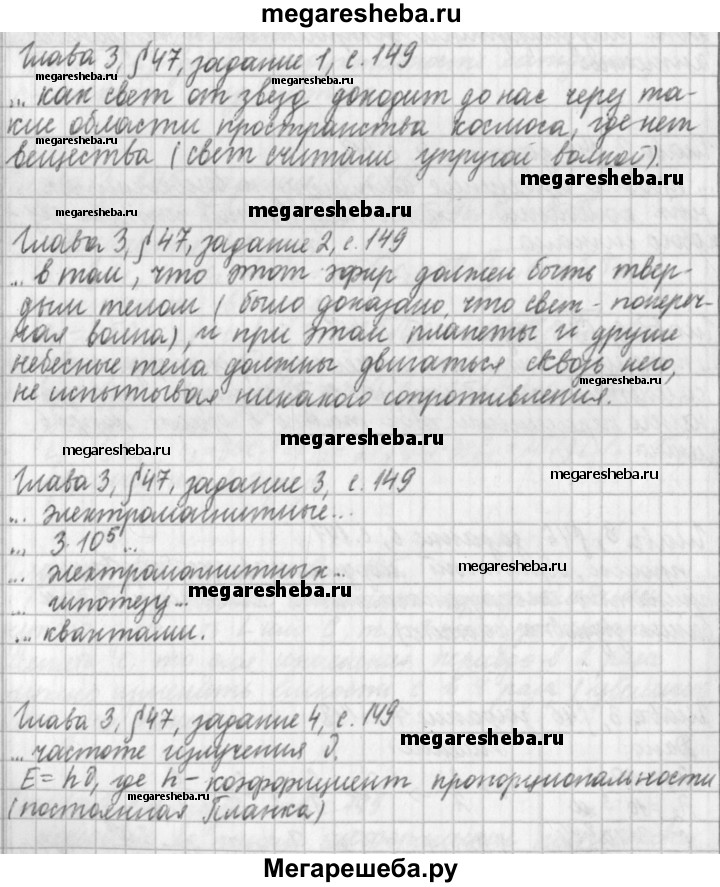 megaresheba.ru
Глава 3, § 47, задание 1, с. 149
megaresheba.ru
... как свет от звезд доходит до нас через та-
megaresheba.ru
megaresheba.ru
кие области пространства космоса, где нет
megaresheba.ru
вещества (свет считали упругой волной).
megaresheba.ru
megaresheba.ru
megaresheba.ru
megaresheba.ru
Глава 3, § 47, задание 2, с. 149
... в том, что этот эфир должен быть твер-
дым телом (было доказано, что свет - попереч-
ная волна), и при этом планеты и другие
небесные тела должны двигаться сквозь него,
megaresheba.ru
не испытывая никакого сопротивления.
megaresheba.ru
megaresheba.ru
megaresheba.ru
Глава 3, § 47, задание 3, с. 149
... электромагнитные...
... 3·10⁵...
... электромагнитных...
megaresheba.ru
megaresheba.ru
... гипотезу...
... квантами.
Глава 3, § 47, задание 4, с. 149
megaresheba.ru
... частоте излучения ϑ.
E = hϑ, где h - коэффициент пропорциональности
megaresheba.ru
(постоянная Планка)
Мегарешеба.ру